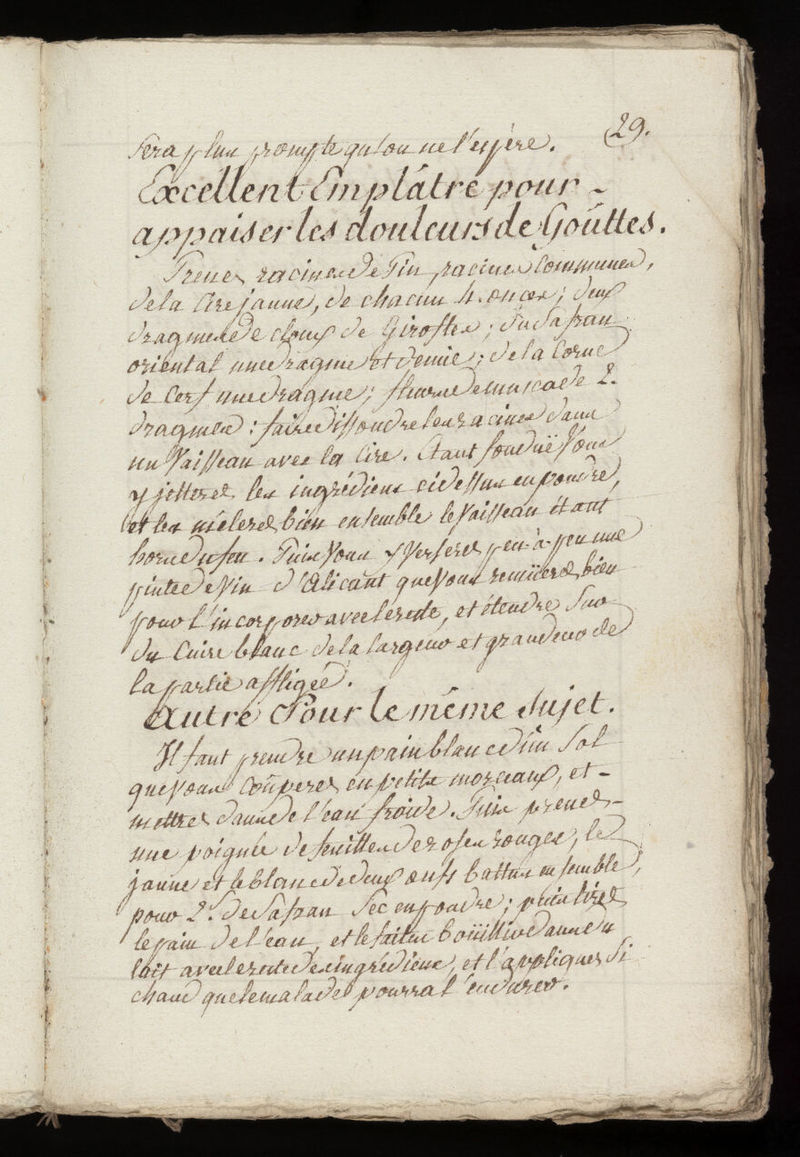 29.
sera plus prompte qu'on ne l'espère.
Excellent Emplâtre pour
appaiser les douleurs de Goûttes.
Prenez racines de Pin, racines Communes,
de la Cire jaune, de chacun 4. onces; deux
dragmes de cloux de Girofles; du Safran
oriental une dragme et demie; de la Corne
de Cerf une dragme; fleurs de muscade 2.
dragmes: faire dissoudre les racines dans
un Vaisseau avec la Cire. Etant fonduë Vous
y jetterez les ingrédiens cidessus en poudre,
et les mèlerez bien ensemble le Vaisseau étant
hors du feu. Puis Vous y Verserez peu-à-peu une
pinte de Vin d'Alicant que Vous remüerez bien
pour l'incorporer avec le reste, et étendre Sur
du Cuire blanc de la largeur et grandeur de
la partie affligée.
Autre Pour le même Sujet.
Il faut prendre un pain blanc d'un Sol
que Vous Coûperez en petits morceaux, et
mettrez dans de l'eau froide. Puis prenez
une poignée de feuilles de roses rouges, le
jaune et le blanc de deux œufs battus ensemble,
pour 2 s. de Safran Sec en poudre; puis tirez
le pain de l'eau, et le faites boüillir dans du
lait avec le reste des ingrédiens, et l'appliquez Si
chaud que le malade pourra l'endurer.